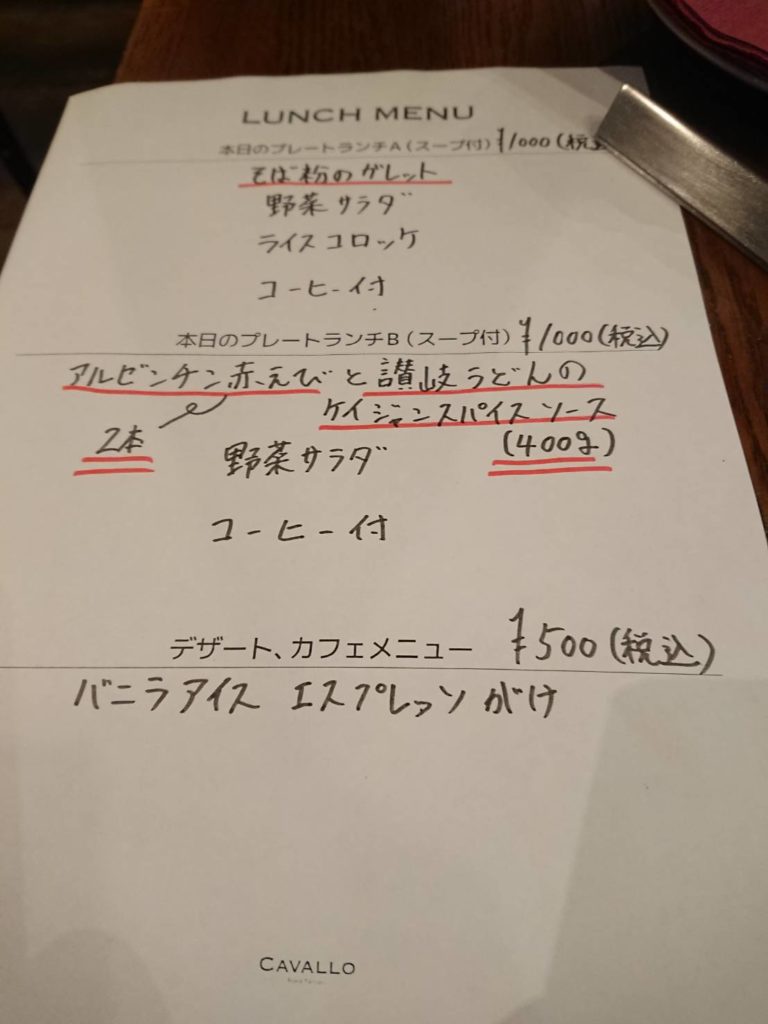 LUNCH MENU
本日のプレートランチA(スープ付) ¥1000(税込
そば粉のガレット
野菜サラダ
ライスコロッケ
コーヒー付
本日のプレートランチB(スープ付) ¥1000(税込)
アルゼンチン赤えびと讃岐うどんの
ケイジャンスパイスソース
2本
(400g)
野菜サラダ
コーヒー付
デザート、カフェメニュー ¥500(税込)
バニラアイス エスプレッソがけ
CAVALLO